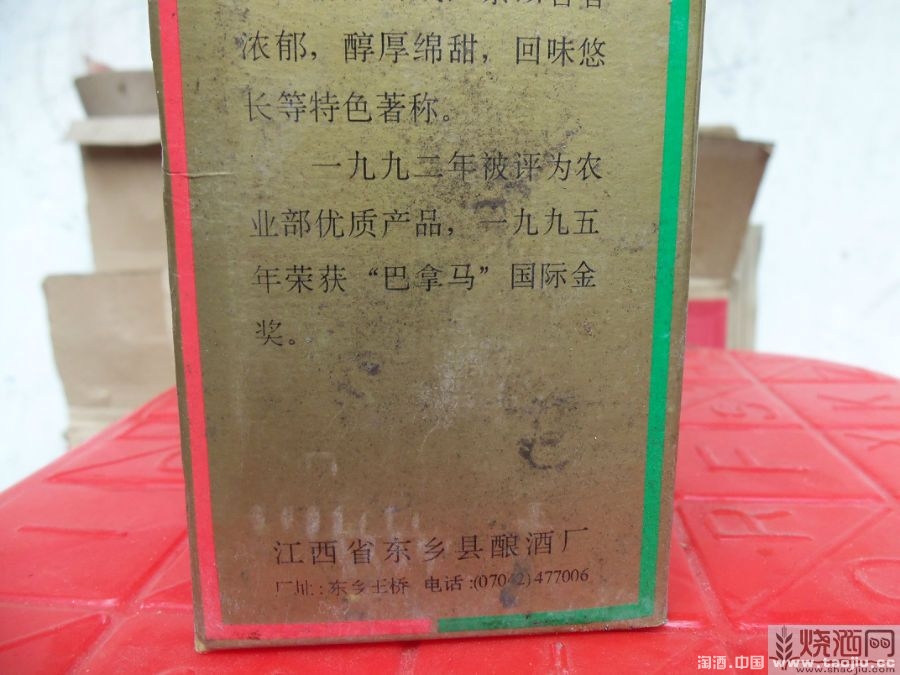 浓郁，醇厚绵甜，回味悠
长等特色著称。
一九九二年被评为农
业部优质产品，一九九五
年荣获“巴拿马”国际金
奖。
江西省东乡县酿酒厂
厂址：东乡王桥 电话:(07042)477006
烧酒网
www.shaojiu.com
淘酒.中国 www.taojiu.cc